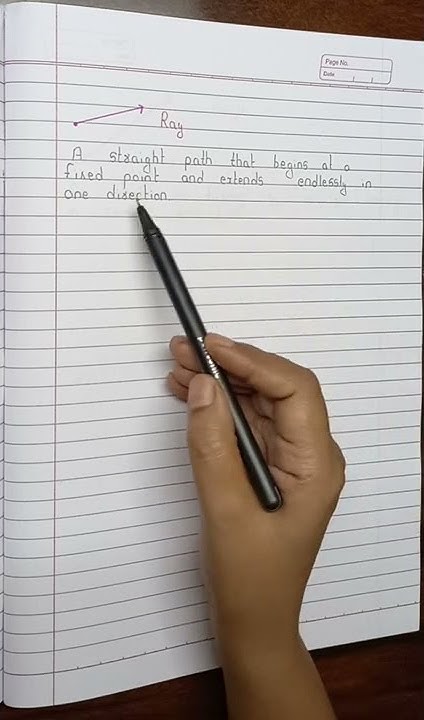 Page No.
Date
Ray
A straight path that begins at a
fixed point and extends endlessly in
one direction